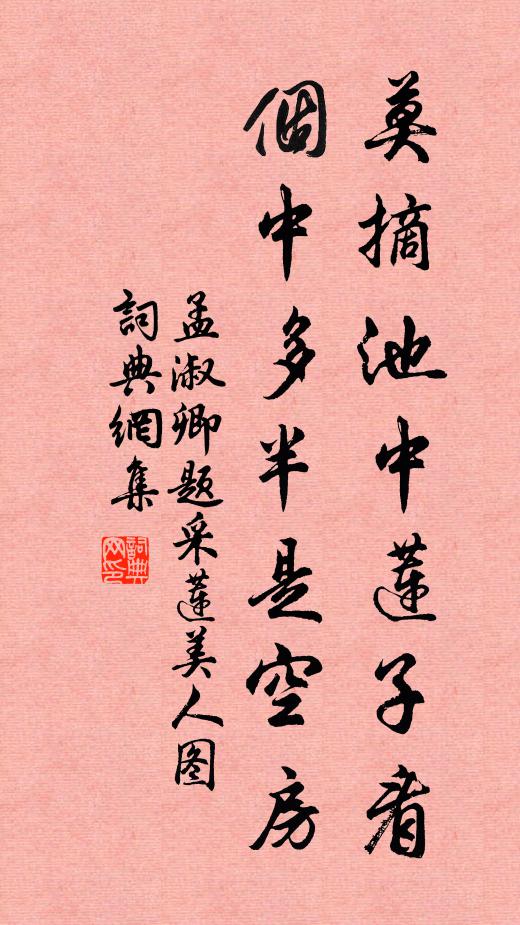 莫摘池中蓮子看
個中多半是空房
孟淑卿题采蓮美人图
詞典網集
詞典网印